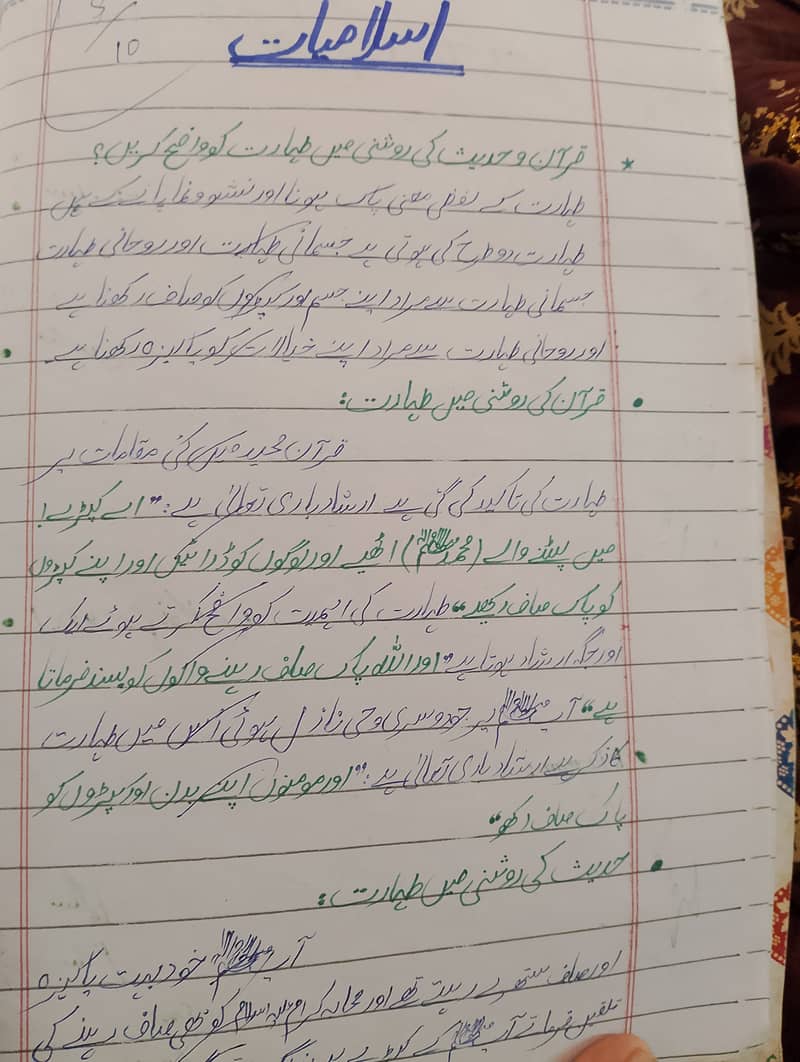 5/10
اسلامیات
* قرآن و حدیث کی روشنی میں طہارت کو واضح کریں؟
طہارت کے لفظی معنی پاک ہونا اور نشوونما پانے کے ہیں
طہارت دو طرح کی ہوتی ہے جسمانی طہارت اور روحانی طہارت
جسمانی طہارت سے مراد اپنے جسم اور کپڑوں کو صاف رکھنا ہے
اور روحانی طہارت سے مراد اپنے خیالات کو پاکیزہ رکھنا ہے
• قرآن کی روشنی میں طہارت:
قرآن مجید میں کئی مقامات پر
طہارت کی تاکید کی گئی ہے ارشاد باری تعالیٰ ہے: "اے کپڑے!
میں لپٹنے والے (محمد ﷺ) اٹھیے اور لوگوں کو ڈرائیں اور اپنے کپڑوں
کو پاک صاف رکھیے" طہارت کی اہمیت کو واضح کرتے ہوئے ایک
اور جگہ ارشاد ہوتا ہے "اور اللہ پاک صاف رہنے والوں کو پسند فرماتا
ہے" آپ ﷺ پر جو دوسری وحی نازل ہوئی اس میں طہارت
کا ذکر ہے ارشاد باری تعالیٰ ہے: "اور مومنوں اپنے بدن اور کپڑوں کو
پاک صاف رکھو"
• حدیث کی روشنی میں طہارت:
آپ ﷺ خود بہت پاکیزہ
اور صاف ستھرے رہتے تھے اور صحابہ کرام کو بھی صاف رہنے کی
تلقین فرماتے آپ ﷺ کے کپڑے